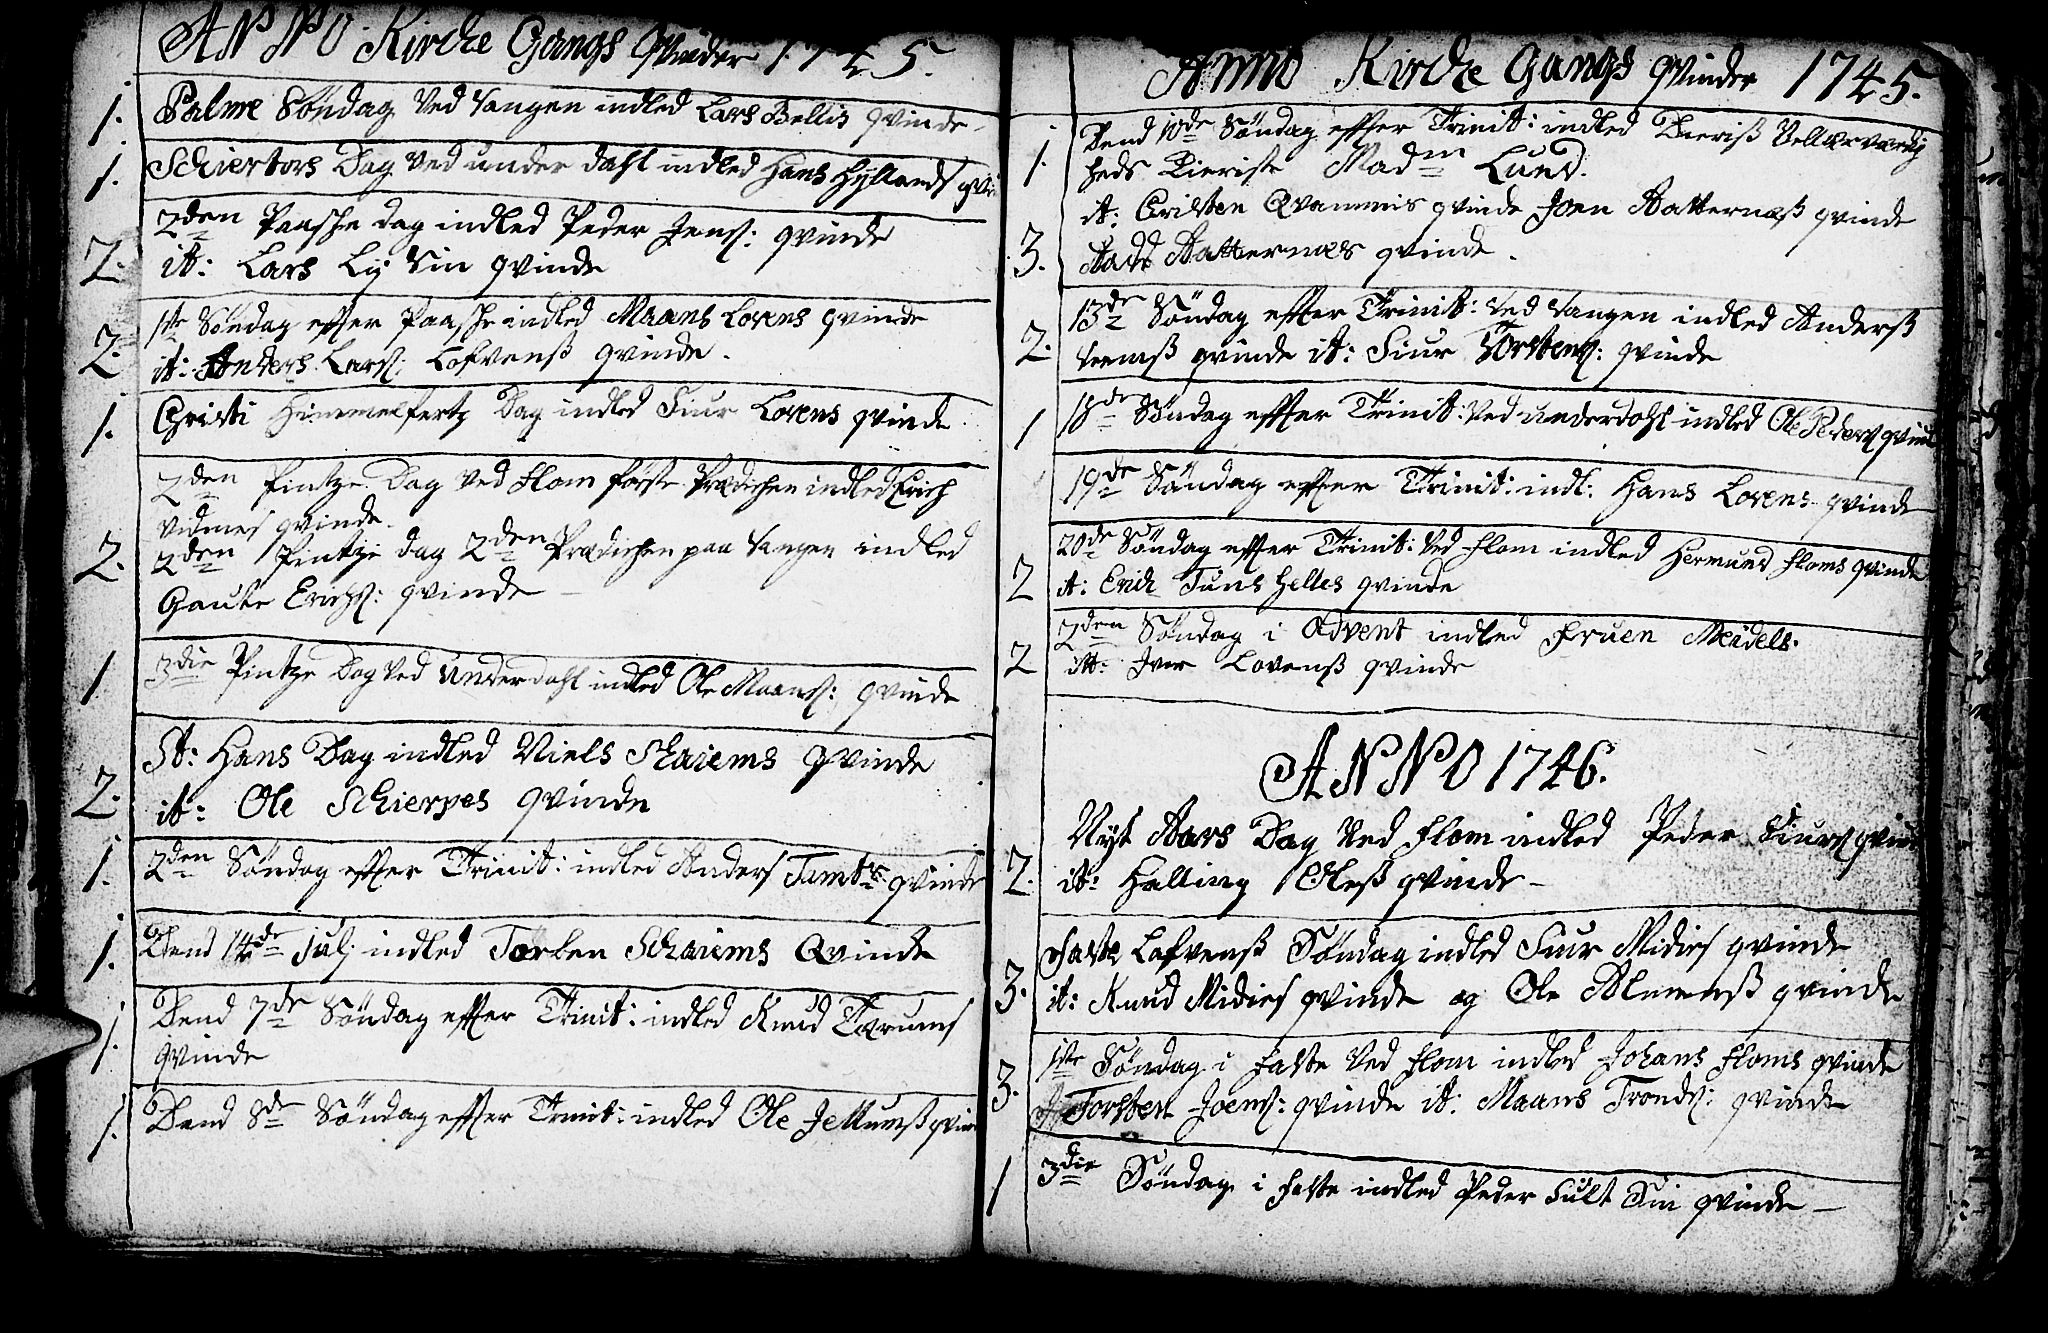 ANNO Kirche Gangs Qvinder 1745.
1. Palme Söndag Ved Vangen indled Lars Bellis qvinde
1. Schiertors Dag Ved under dahl indled Hans Hyllands
2den Paasche dag indled Peder Jens: qvinde
2. it: Lars Lij Sin qvinde
1ste Söndag effter Paasche indled Maans Lovens qvinde
2. it: Anders Lars: Lofvenß qvinde.
1. Christi Himmelfertz Dag indled Siur Lovens qvinde
2den Pintze Dag Ved Flom förste Prædichen indled Erich
Vidmes qvinde.
2. 2den Pintze dag 2den Prædichen paa Vangen indled
Gaute Erichs: qvinde
1 3die Pintze Dag Ved Underdahl indled Ole Maans: qvinde
St: Hans Dag indled Niels Skaiems Qvinde
2. it: Ole Schierpes qvinde
1. 2den Söndag effter Trinit: indled Anders qvinde
1. Dend 14de julj indled Torben Schaiems Qvinde
Dend 7de Söndag effter Trinit: indled Knud
1. qvinde
1. Dend 8de Söndag effter Trinit: indled Ole
Anno Kirche Gangs qvinder 1745.
Dend 10de Söndag effter Trinit: indled
1. heds Kieriste Madm Lund.
it: Christen Qvammis qvinde Joen Aatternæß qvinde
3. Aatternæs qvinde.
13de Söndag effter Trinit: Ved Vangen indled Anderß
2. qvinde it: Siur Torstens: qvinde
1 18de Söndag effter Trinit: Ved underdahl indled Ole Peders qvinde
19de Söndag effter Trinit: indl: Hans Lovens qvinde
20de Söndag effter Trinit: Ved Flom indled Hermund Floms qvinde
2 it: Erich Tuns Helles qvinde
2den Söndag i Advent indled Fruen Meidels.
2 it: Iver Lovenß qvinde
ANNO 1746.
Nyt Aars Dag Ved Flom indled Peder Siurs qvinde
2. it: Halling Oleß qvinde
Faste Lafvenß Söndag indled Siur Midies qvinde
3. it: Knud Midies qvinde og Ole qvinde
1ste Söndag i Faste Ved Flom indled Johans Floms qvinde
3. Torsten Joens: qvinde it: Maans Tronds: qvinde
1 3die Söndag i Faste indled Peder Sult Sin qvinde